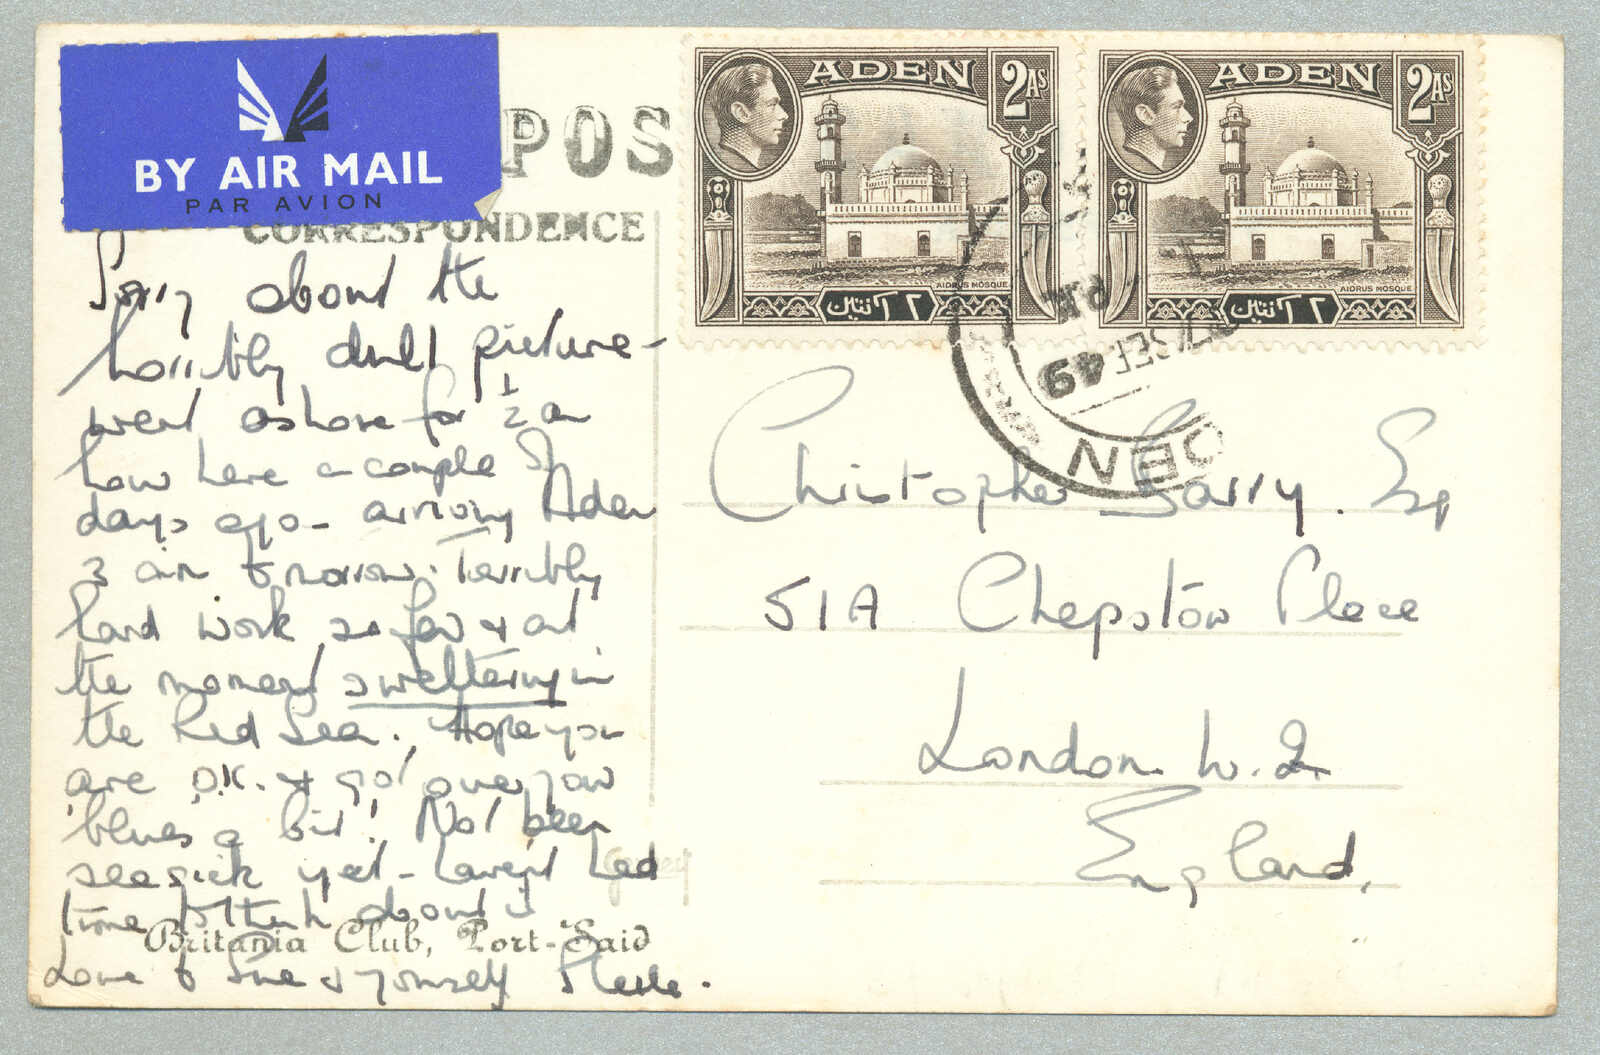 BY AIR MAIL
PAR AVION
POS
CORRESPONDENCE
ADEN
2 AS
AIDRUS MOSQUE
ADEN
2 AS
AIDRUS MOSQUE
DEN
7 SEP 49
Sorry about the
horribly dull picture -
went ashore for ½ an
hour here a couple of
days ago - arriving Aden
3 am tomorrow. Terribly
hard work so far & at
the moment sweltering in
the Red Sea. Hope you
are O.K. & got over your
'blues' a bit! Not been
seasick yet - haven't had
time to think about it
Love to Sue & yourself
Christopher Barry. Esq
51A Chepstow Place
London W.2.
England.
Britania Club, Port-Said